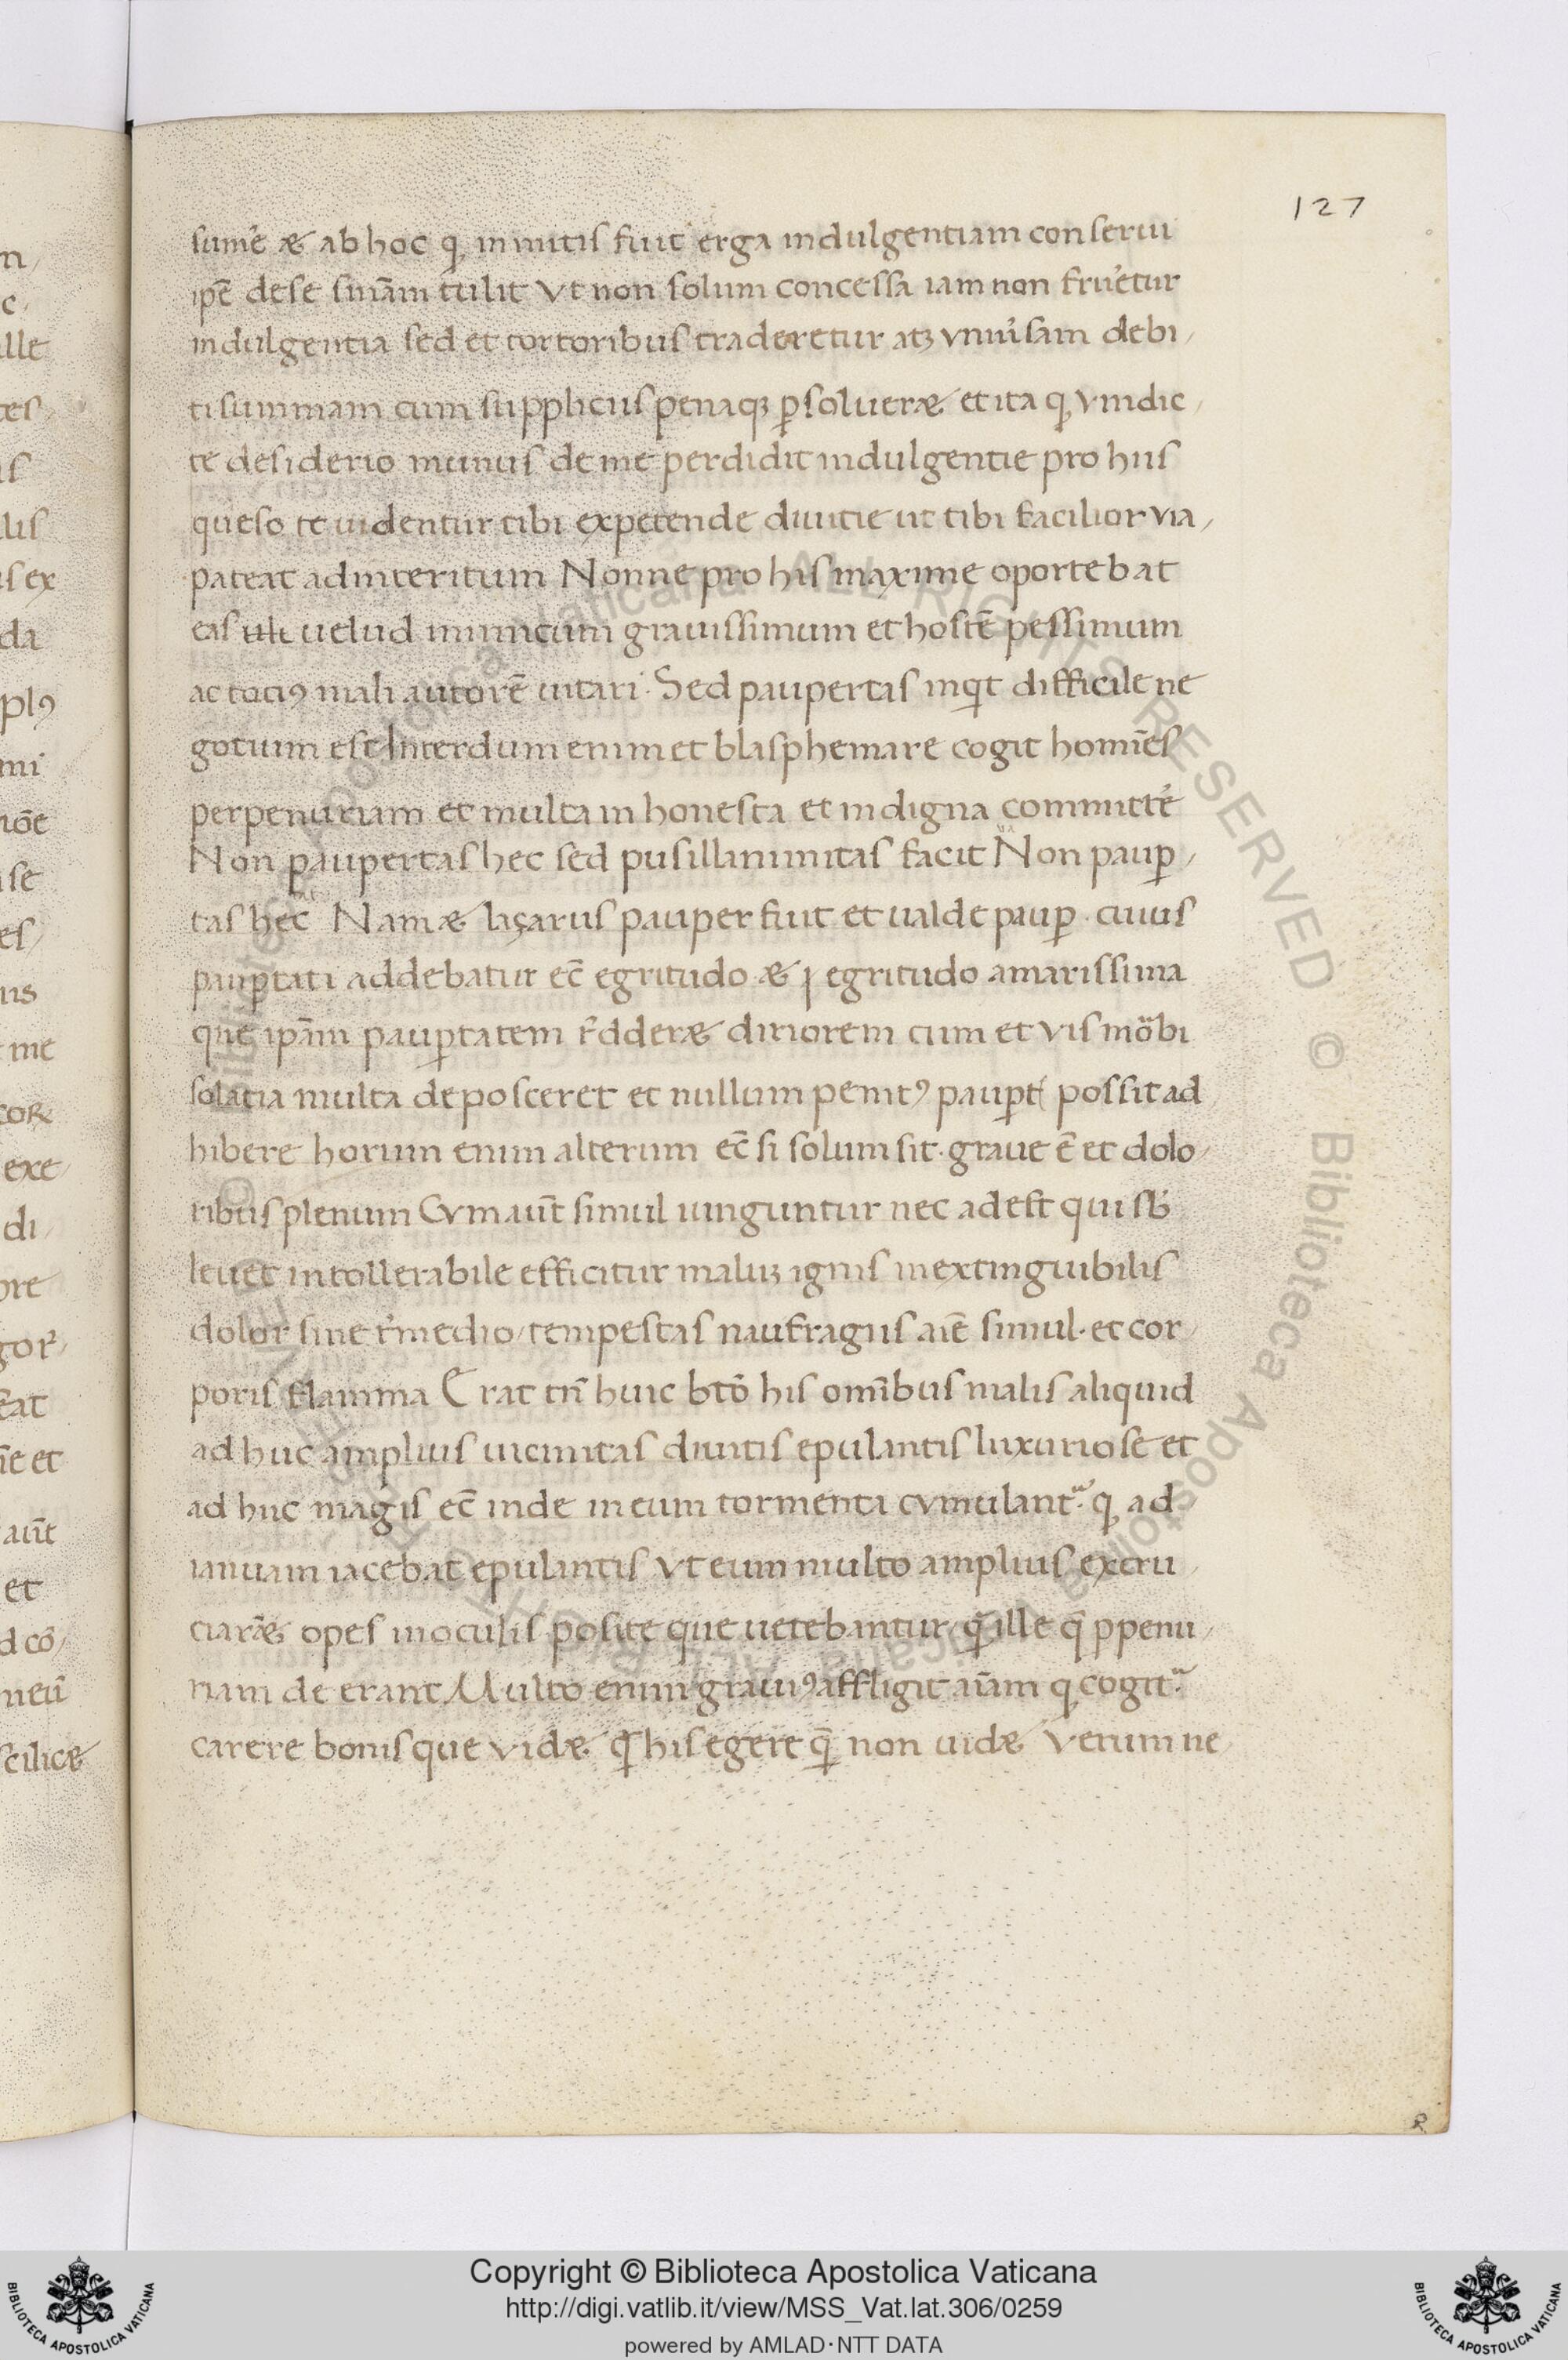 127
sume᷒ æ ab hoc ꝙ inmitis fuit erga indulgentiam conserui
ip̄e dese sn̄iam tulit Vt non solum concessa iam non frue᷒tur
indulgentia sed et tortoribus traderetur atqꝫ vniu᷒sam debi/
ti summam cum suppliciis penaqꝫ ꝑsolueræ et ita ꝙ vindic/
te desiderio munus de me perdidit indulgentie pro hiis
queso te uidentur tibi expetende diuitie ut tibi facilior via/
pateat adinteritum Nonne pro his maxime oportebat
eas uti uelud inimicum grauissimum et hostē pessimum
ac totiꝰ mali autorē uitari. Sed paupertas inqͥt difficile ne
gotium est Interdum enim et blasphemare cogit homīes
perpenuriam et multa in honesta et indigna committe᷒
Non paupertas hec sed pusillanimitas facit Non pauꝑ/
tas hec Nam æ laçarus pauper fuit et ualde pauꝑ. cuius
pauꝑtati addebatur ec̄ egritudo æ egritudo amarissima
que ip̄am pauꝑtatem r᷒dderæ diriorem cum et vis mo᷒bi
solatia multa deposceret et nullum penitꝰ pauꝑt possit ad
hibere horum enim alterum ec̄ si solum sit. graue ē et dolo/
ribus plenum Cum aūt simul iunguntur nec adest qui sb᷒
leuet intollerabile efficitur maluꝫ ignis inextinguibilis
dolor sine r᷒medio/tempestas naufragiis aīe simul. et cor/
poris flamma Erat tn̄ huic bt̄o his omībus malis aliquid
ad huc amplius uicinitas diuitis epulantis luxuriose et
ad huc magis ec̄ inde in eum tormenta cumulantᷣ. ꝙ ad
ianuam iacebat epulantis Vt eum multo amplius excru/
ciaræ opes inoculis posite que uetebantur/ ꝙ̄ ille q̄ ꝑpenu/
riam de erant Multo enim grauiꝰ affligit aīam ꝙ cogitᷣ
carere bonis que videæ ꝙ̄ his egere q̄ non uidæ Verum ne/
Copyright © Biblioteca Apostolica Vaticana
http://digi.vatlib.it/view/MSS_Vat.lat.306/0259
powered by AMLAD·NTT DATA